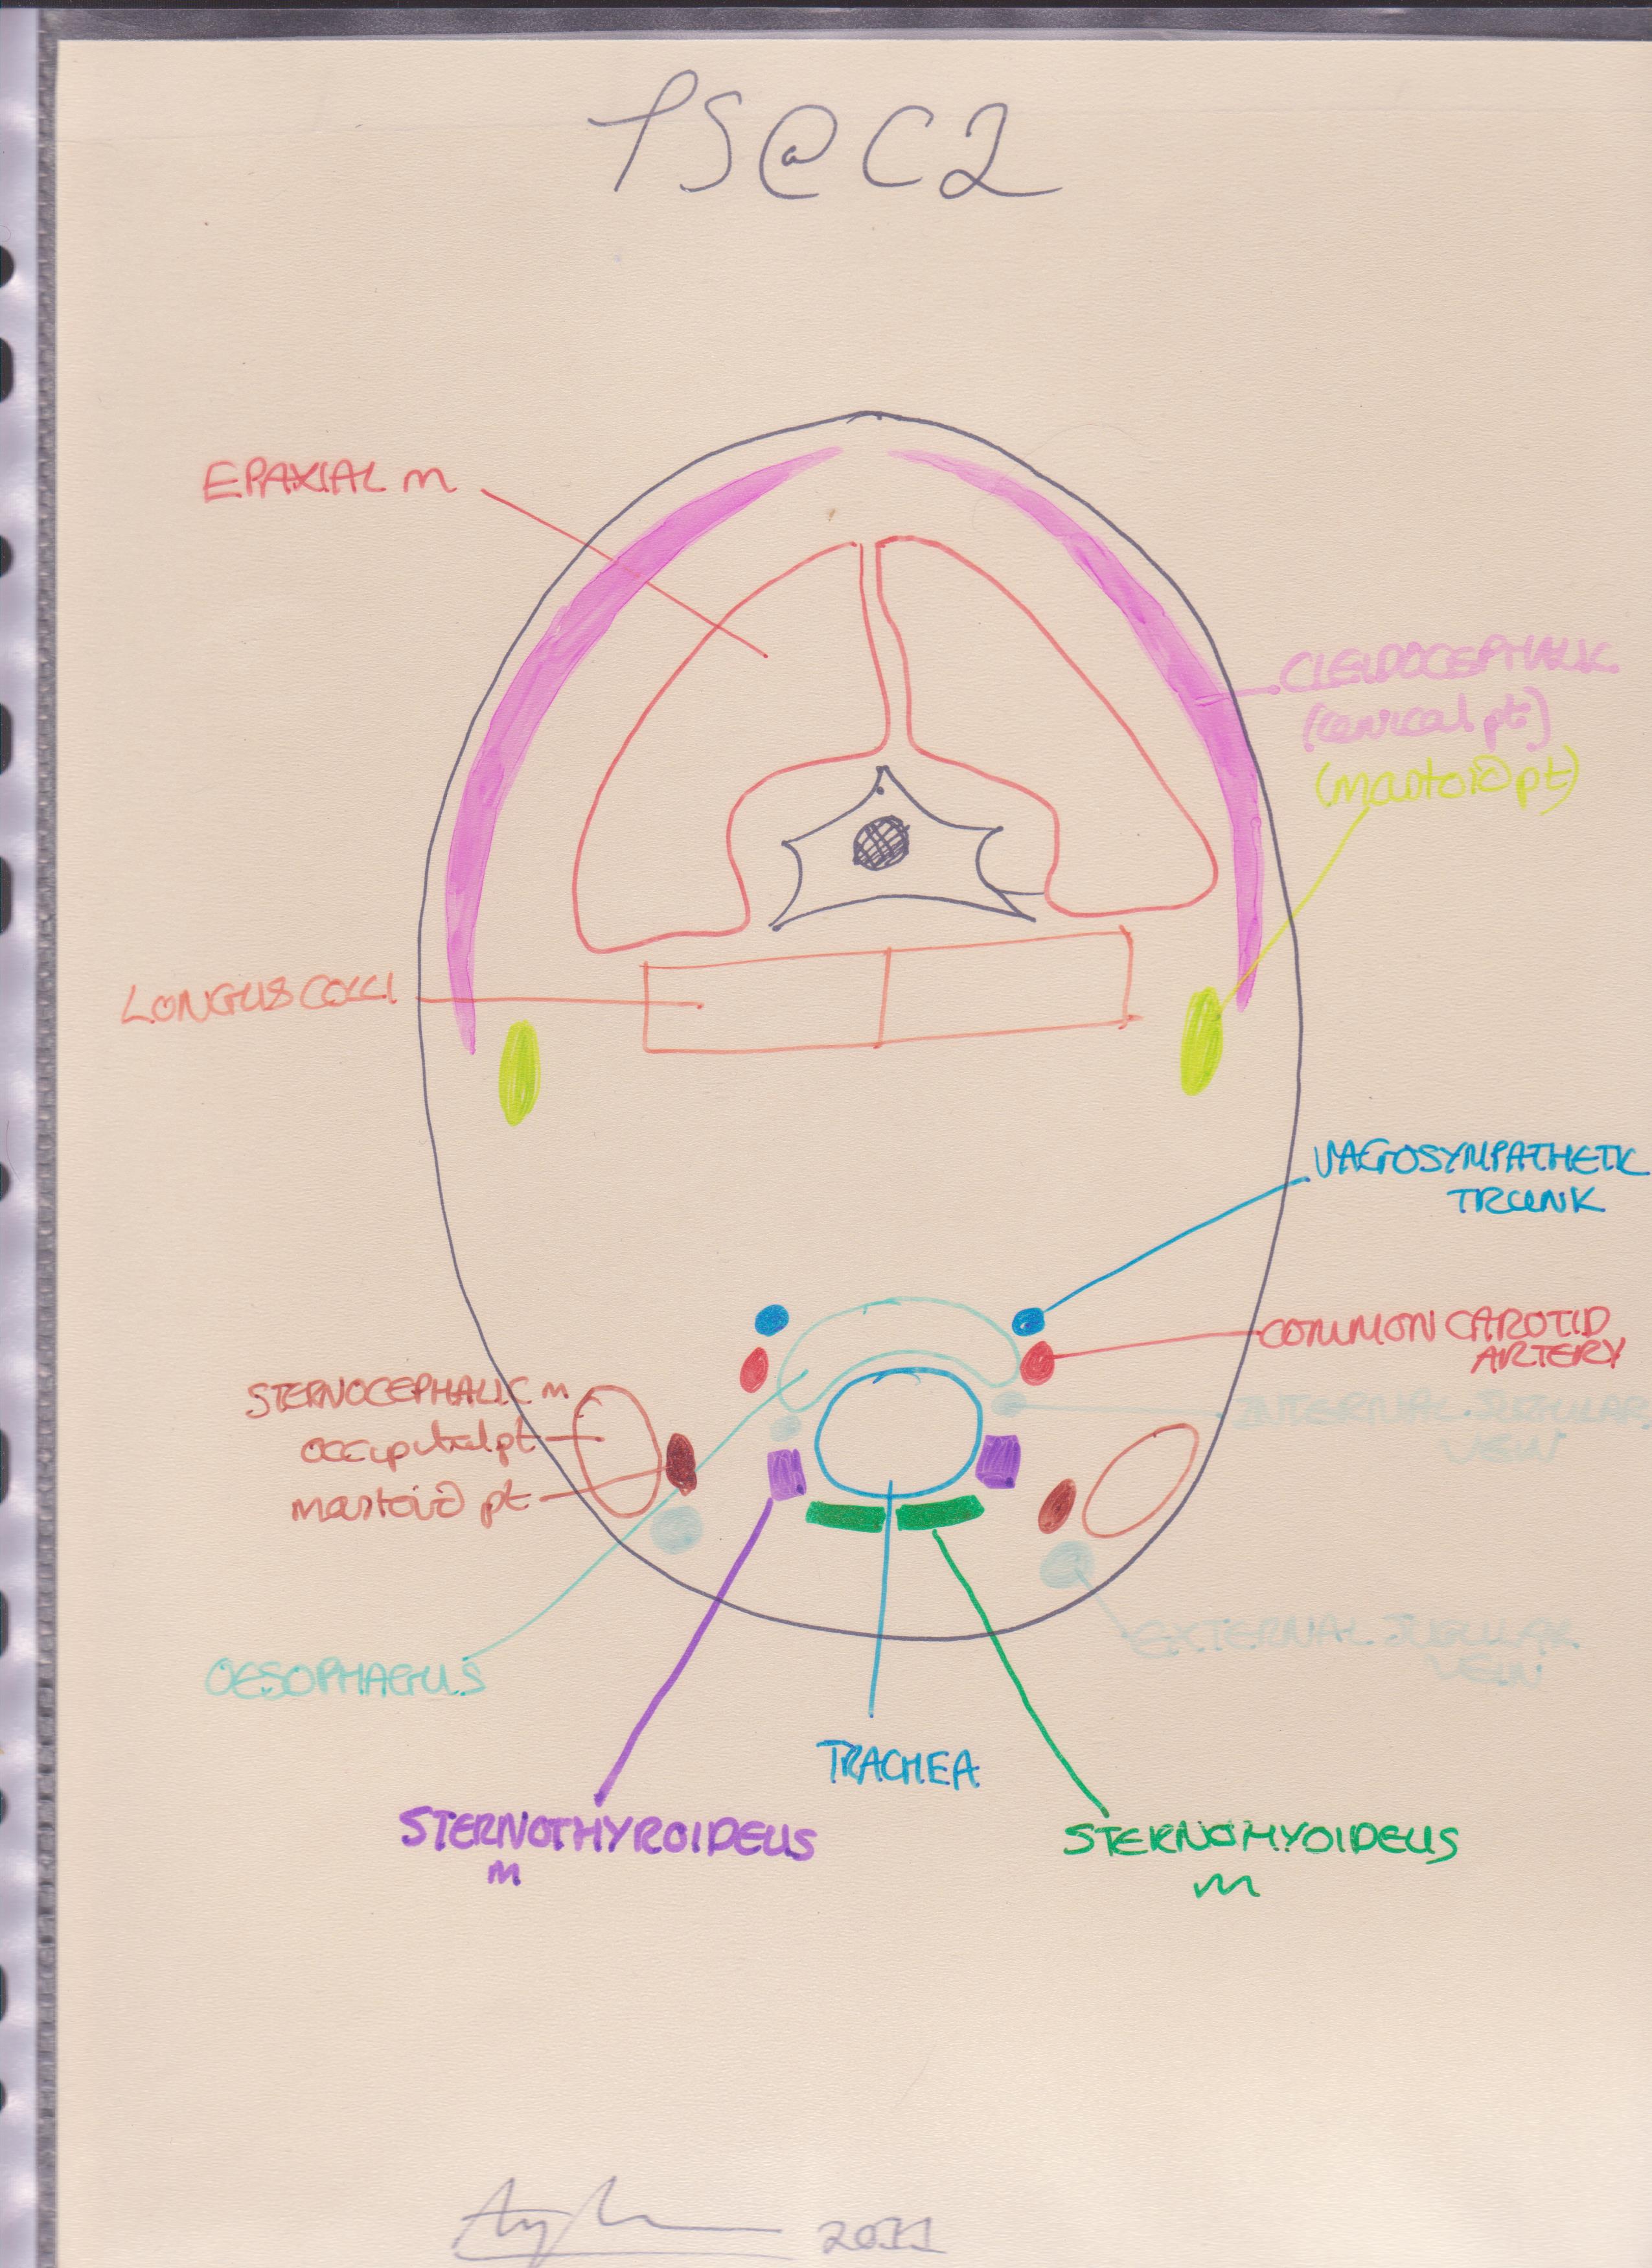 TS@C2
EPAXIAL m
CLEIDOCEPHALIC
(cervical pt)
(mastoid pt)
LONGUS COLLI
VAGOSYMPATHETIC
TRUNK
COMMON CAROTID
ARTERY
STERNOCEPHALIC m
occipital pt
mastoid pt
INTERNAL JUGULAR
VEIN
EXTERNAL JUGULAR
VEIN
OESOPHAGUS
TRACHEA
STERNOTHYROIDEUS
m
STERNOHYOIDEUS
m
2011